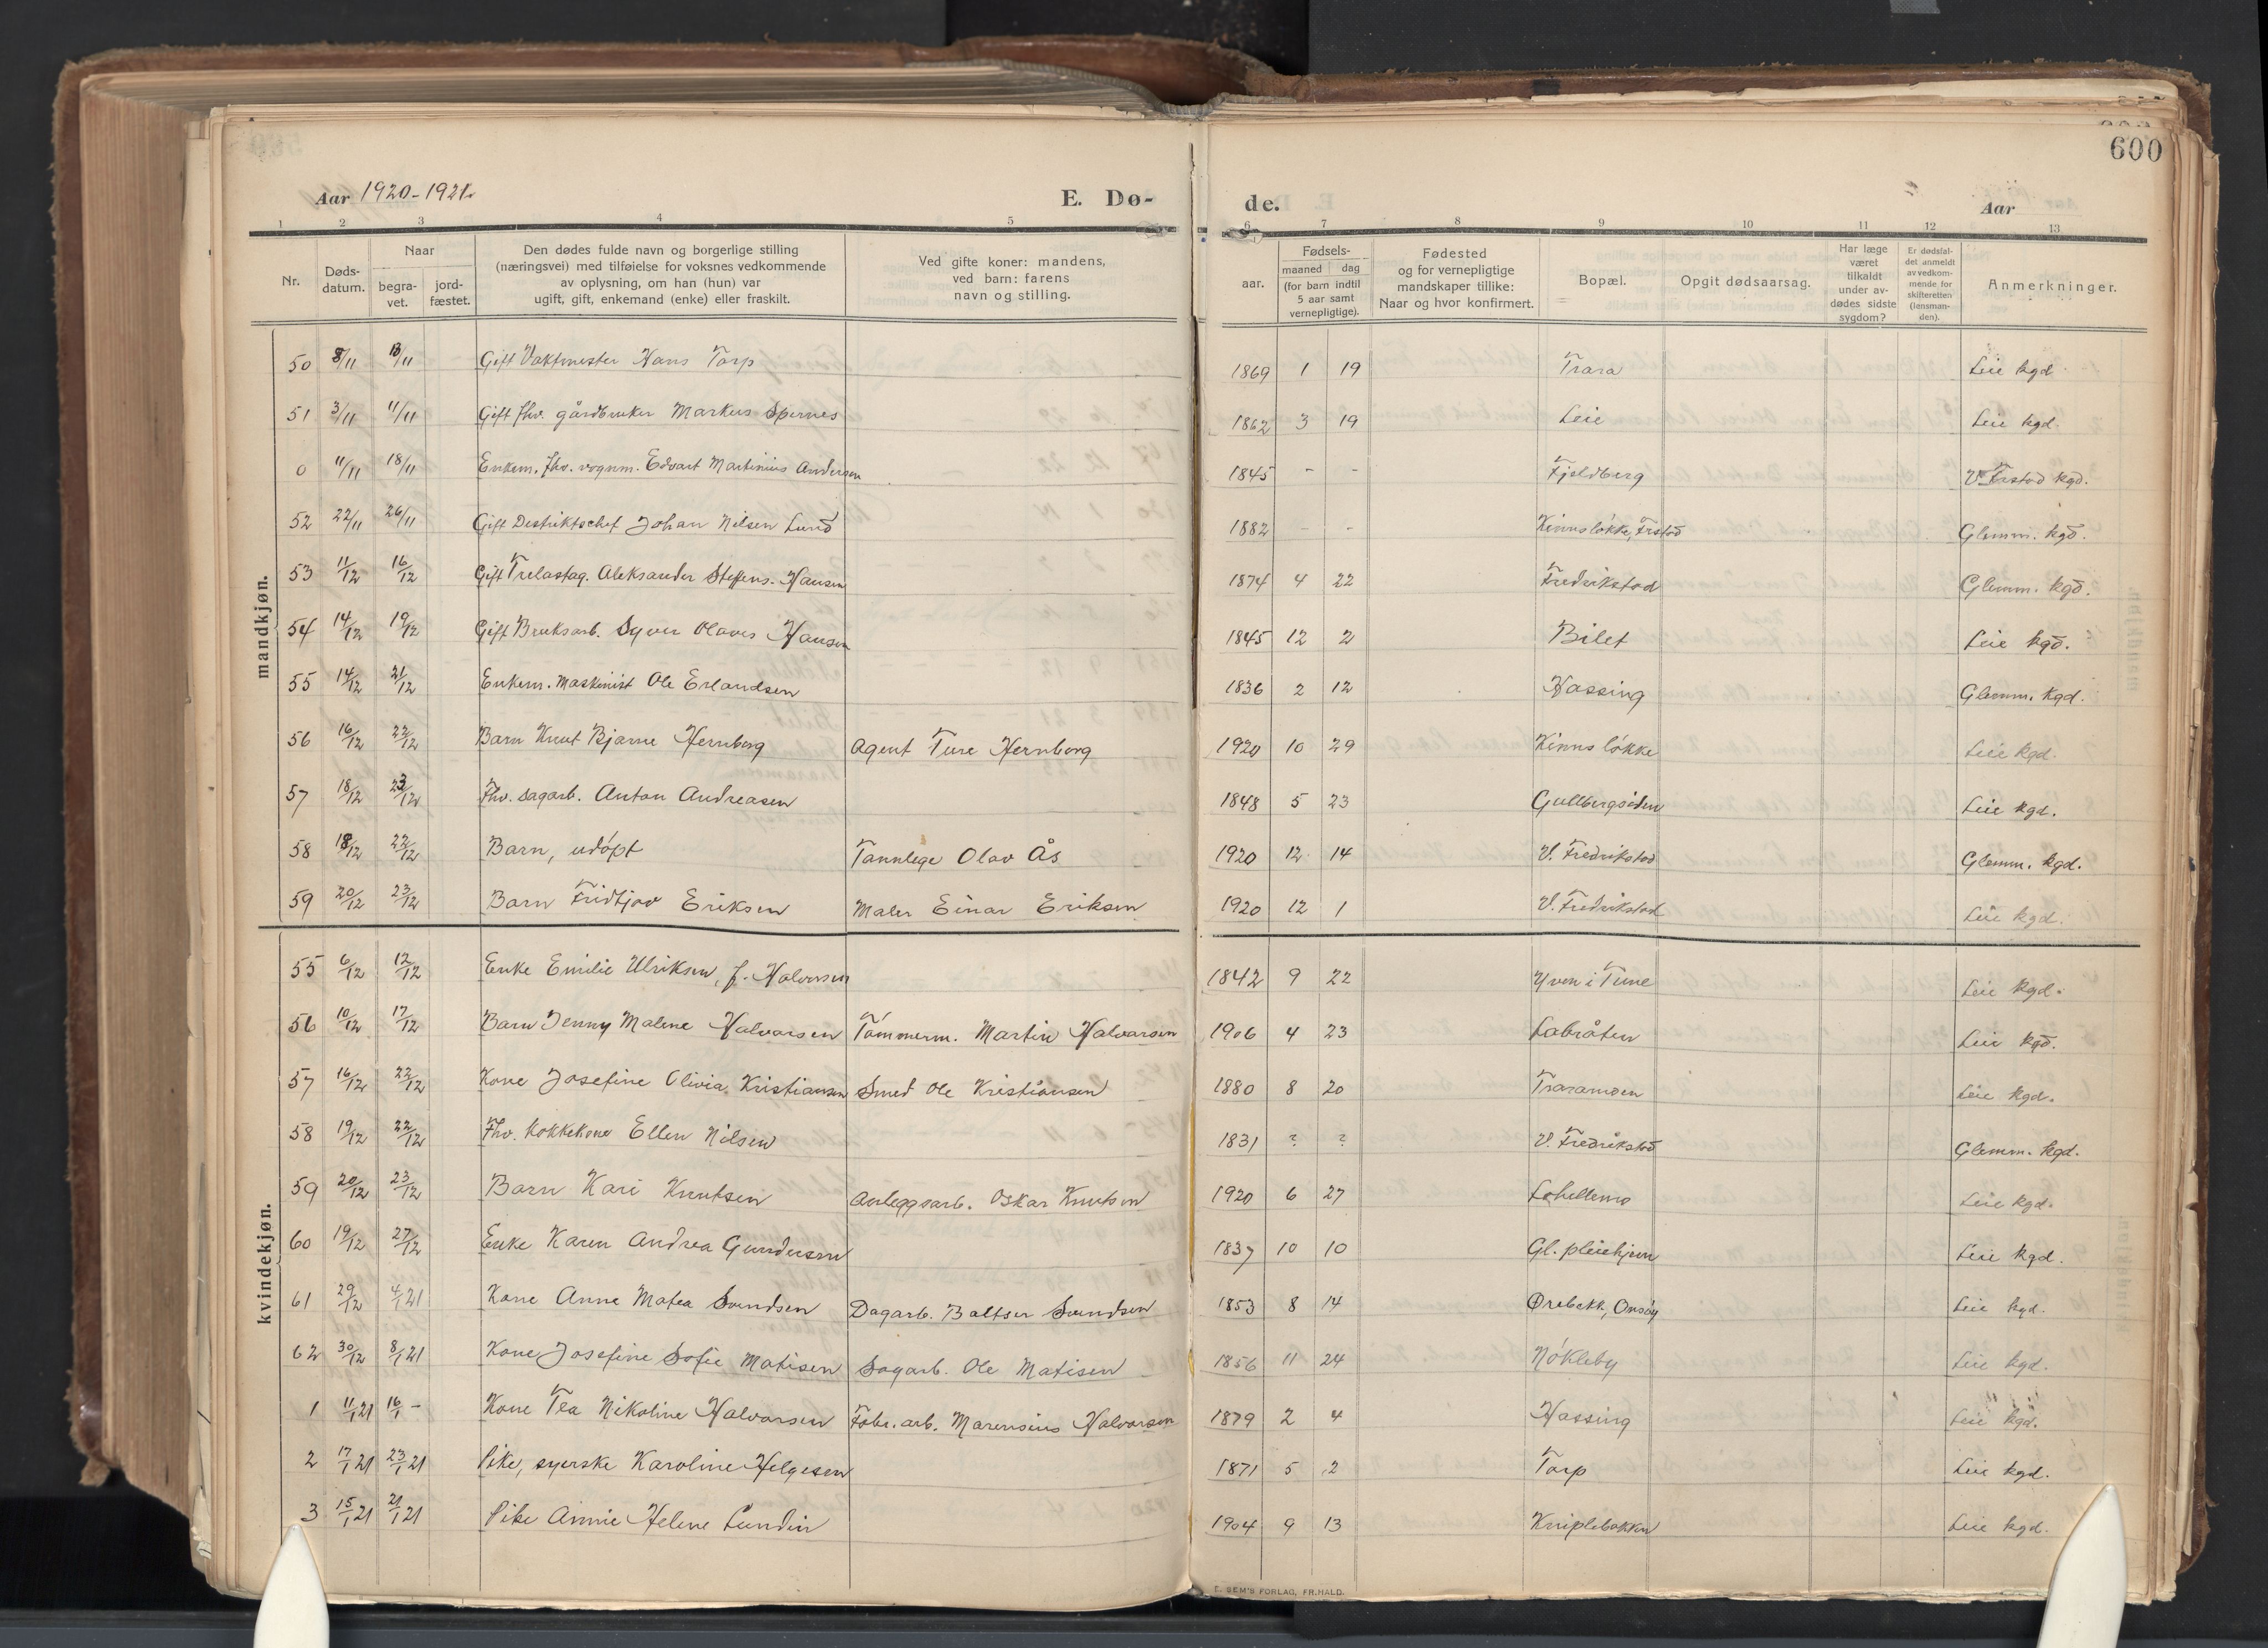 600
Aar 1920-1921. E. Dø- de. Aar
1 2 3 4 5 6 7 8 9 10 11 12 13
Nr. Døds-datum. Naar begra-vet. jord-fæstet. Den dødes fulde navn og borgerlige stilling (næringsvei) med tilføielse for voksnes vedkommende av oplysning, om han (hun) var ugift, gift, enkemand (enke) eller fraskilt. Ved gifte koner: mandens, ved barn: farens navn og stilling. Fødsels- aar. maaned dag (for barn indtil 5 aar samt vernepligtige). Fødested og for vernepligtige mandskaper tillike: Naar og hvor konfirmert. Bopæl. Opgit dødsaarsag. Har læge været tilkaldt under av-dødes sidste sygdom? Er dødsfal-det anmeldt av vedkom-mende for skifteretten (lensman-den). Anmerkninger.
mandkjøn.
50 8/11 13/11 Gift Vaktmester Hans Torp 1869 1 19 Trara Leie kgd.
51 3/11 11/11 Gift fhv. gårdbruker Markus Spernes 1862 3 19 Leie Leie kgd.
0 11/11 18/11 Enkem. fhv. vognm. Edvart Martinius Andersen 1845 - - Fjeldberg V. Frstad kgd.
52 22/11 26/11 Gift Destriktschef Johan Nilsen Lund 1882 - - Kinnsløkke, Frstad Glemm. kgd.
53 11/12 16/12 Gift Trelastag. Aleksander Steffens. Hansen 1874 4 22 Fredrikstad Glemm. kgd.
54 14/12 19/12 Gift Bruksarb. Syver Olaves Hansen 1845 12 2 Bilet Leie kgd.
55 14/12 21/12 Enkem. Maskinist Ole Erlandsen 1836 2 12 Hassing Glemm. kgd.
56 16/12 22/12 Barn Knut Bjarne Hernborg Agent Ture Hernborg 1920 10 29 Kinnsløkke Leie kgd.
57 18/12 23/12 Fhv. sagarb. Anton Andreasen 1848 5 23 Gullbergsiden Leie kgd.
58 18/12 22/12 Barn, udøpt Tannlege Olav Ås 1920 12 14 V. Fredrikstad Glemm. kgd.
59 20/12 23/12 Barn Fridtjov Eriksen Maler Einar Eriksen 1920 12 1 V. Fredrikstad Leie kgd.
kvindekjøn.
55 6/12 12/12 Enke Emilie Ulriksen, f. Halvorsen 1842 9 22 Yven i Tune Leie kgd.
56 10/12 17/12 Barn Jenny Malene Halvorsen Tømmerm. Martin Halvorsen 1906 4 23 Labråten Leie kgd.
57 16/12 22/12 Kone Josefine Olivia Kristiansen Smed Ole Kristiansen 1880 8 20 Traramoen Leie kgd.
58 19/12 22/12 Fhv. kokkekone Ellen Nilsen 1831 ? ? V. Fredrikstad Glemm. kgd.
59 20/12 23/12 Barn Kari Knutsen Anleggsarb. Oskar Knutsen 1920 6 27 Lohellemo Leie kgd.
60 19/12 27/12 Enke Karen Andrea Gundersen 1837 10 10 Gl. pleiehjem Leie kgd.
61 29/12 4/1 21 Kone Anne Matea Svendsen Dagarb. Baltser Svendsen 1853 8 14 Ørebekk, Onsøy Leie kgd.
62 30/12 8/1 21 Kone Josefine Sofie Matisen Sagarb. Ole Matisen 1856 11 24 Nøkleby Leie kgd.
1 11/1 21 16/1 - Kone Tea Nikoline Halvorsen Fabr. arb. Marensius Halvorsen 1879 2 4 Hassing Leie kgd.
2 17/1 21 23/1 21 Pike, syerske Karoline Helgesen 1871 5 2 Torp Leie kgd.
3 15/1 21 21/1 21 Pike Annie Helene Lundin 1904 9 13 Kniplebakken Leie kgd.
E. SEM'S FORLAG, FR.HALD.